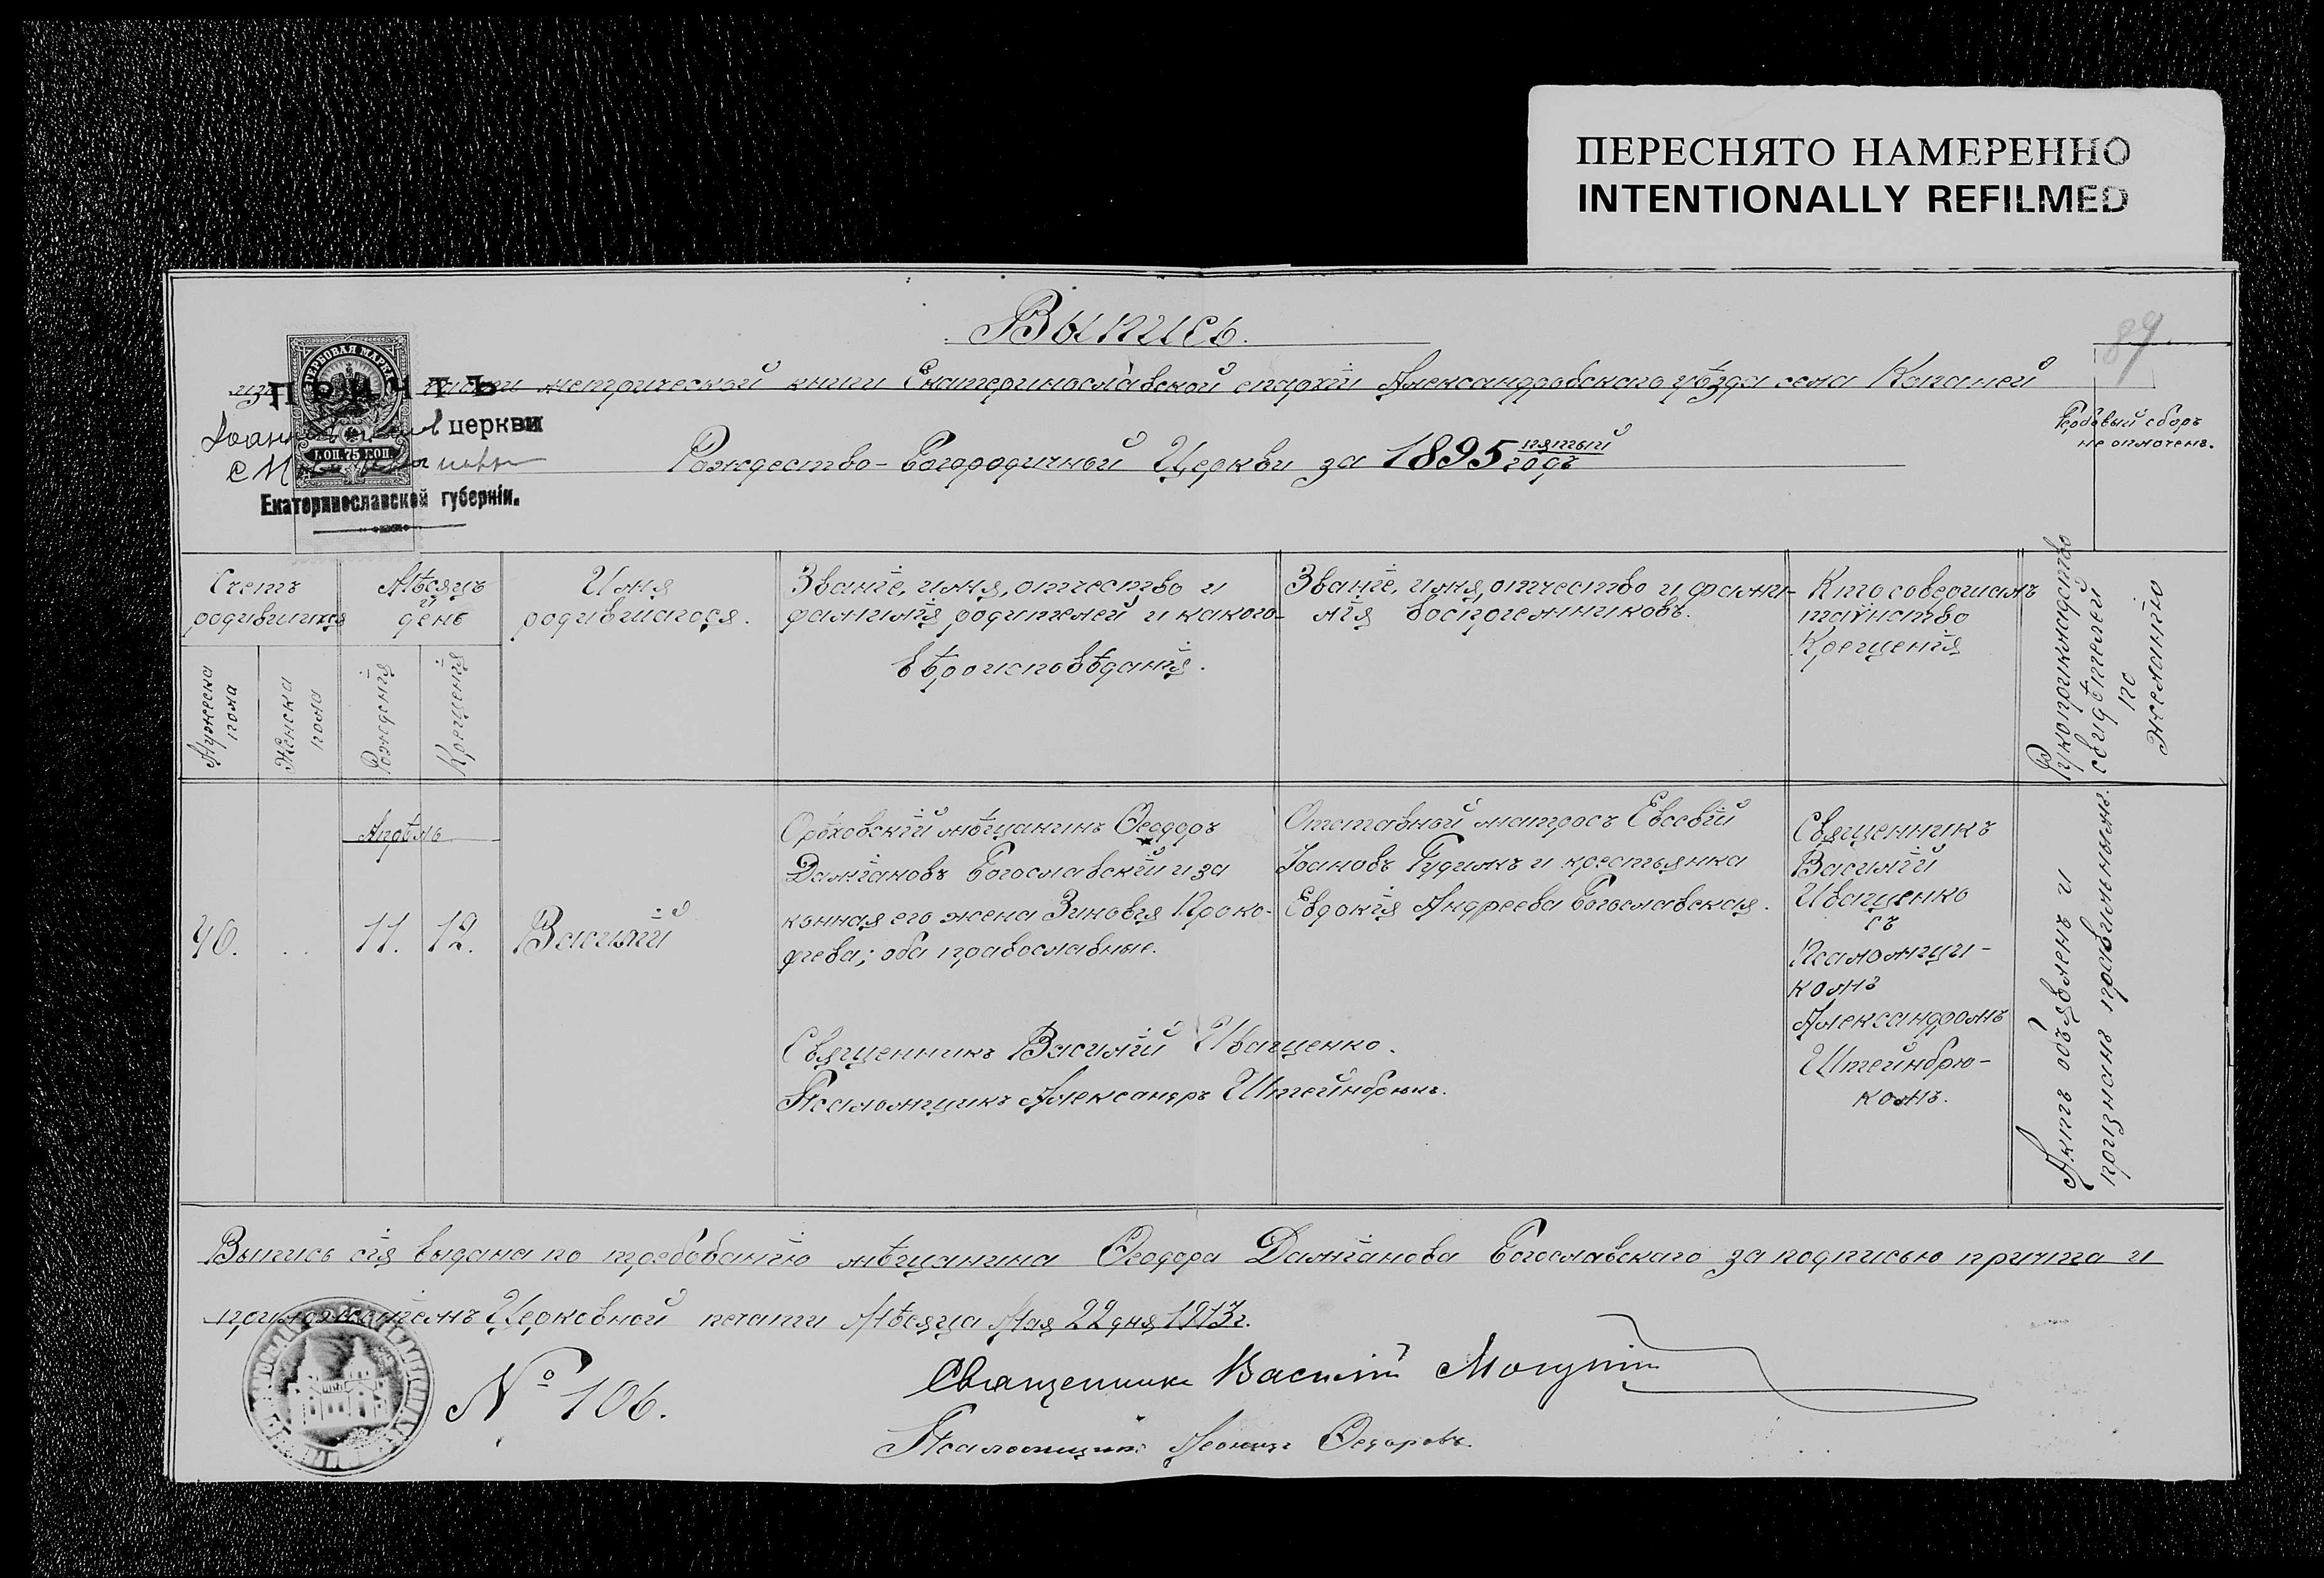 ПЕРЕСНЯТО НАМЕРЕННО
INTENTIONALLY REFILMED
Выпись.
89
изъ части метрической книги Екатеринославской епархіи Александровскаго уѣзда села Копаней
Рождество-Богородичной Церкви за 1895 пятый годъ
Гербовый сборъ
не оплоченъ.
ГЕРБОВАЯ МАРКА
КОП. 75 КОП.
ПРИЧТЪ
церкви
Екатеринославской губерніи.
Счетъ родившихся
Мужеска пола
Женска пола
Мѣсяцъ и день
Рожденія
Крещенія
Имя родившагося.
Званіе, имя, отчество и
фамилія родителей и какого
вѣроисповѣданія.
Званіе, имя, отчество и фами-
лія воспріемниковъ.
Кто совершалъ
таинство
Крещенія
Рукоприкладство
свидѣтелей
по
желанію
Апрѣль
40.
11.
12.
Василій
Орѣховскій мѣщанинъ Ѳеодоръ
Даміановъ Богославскій и за
конная его жена Зиновія Проко-
фіева; оба православные.
Священникъ Василій Иващенко.
Псаломщикъ Александръ Штейнбрюкъ.
Отставной матросъ Евсевій
Іоановъ Гудимъ и крестьянка
Евдокія Андреева Богославская.
Священникъ
Василій
Иващенко
съ
Псаломщи-
комъ
Александромъ
Штейнбрю-
комъ.
Актъ объявленъ и
признанъ правильнымъ.
Выпись сія выдана по требованію мѣщанина Ѳеодора Даміанова Богославскаго за подписью причта и
приложеніемъ Церковной печати Мѣсяца Мая 22 дня 1913 г.
№ 106.
Священникъ Василій
Псаломщикъ Леонидъ Ѳедоровъ.